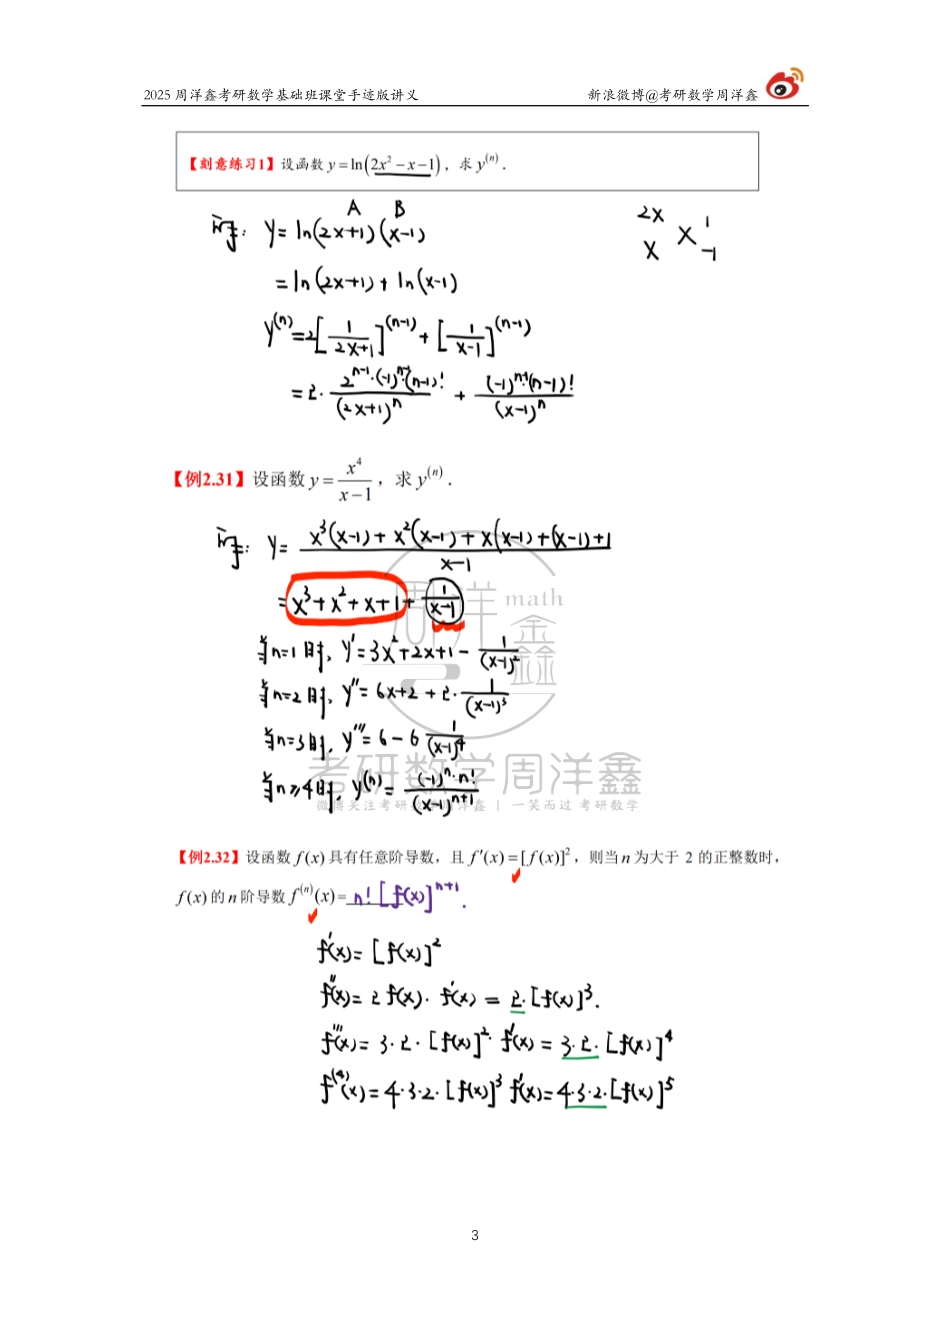 2025 周洋鑫考研数学基础班课堂手迹版讲义 新浪微博@考研数学周洋鑫
【刻意练习1】设函数 y = ln(2x² − x − 1)，求 y⁽ⁿ⁾．
A B
解: y = ln(2x+1)(x-1)
2x 1
x × -1
= ln(2x+1) + ln(x-1)
y⁽ⁿ⁾ = 2[1/(2x+1)]⁽ⁿ⁻¹⁾ + [1/(x-1)]⁽ⁿ⁻¹⁾
= 2· 2ⁿ⁻¹·(-1)ⁿ⁻¹·(n-1)!/(2x+1)ⁿ + (-1)ⁿ⁻¹·(n-1)!/(x-1)ⁿ
【例2.31】设函数 y = x⁴/(x−1)，求 y⁽ⁿ⁾．
解: y = (x³(x-1) + x²(x-1) + x(x-1) + (x-1) + 1)/(x-1)
= x³ + x² + x + 1 + 1/(x-1)
当n=1时, y′ = 3x² + 2x + 1 − 1/(x-1)²
当n=2时, y″ = 6x + 2 + 2· 1/(x-1)³
当n=3时, y‴ = 6 − 6 1/(x-1)⁴
当n≥4时, y⁽ⁿ⁾ = (-1)ⁿ·n!/(x-1)ⁿ⁺¹
周洋鑫 math
考研数学周洋鑫
微博关注考研数学周洋鑫 | 一笑而过 考研数学
【例2.32】设函数 f(x) 具有任意阶导数，且 f′(x) = [f(x)]²，则当 n 为大于 2 的正整数时，
f(x) 的 n 阶导数 f⁽ⁿ⁾(x) = n! [f(x)]ⁿ⁺¹.
f′(x) = [f(x)]²
f″(x) = 2 f(x)· f′(x) = 2·[f(x)]³.
f‴(x) = 3·2·[f(x)]²· f′(x) = 3·2·[f(x)]⁴
f⁽⁴⁾(x) = 4·3·2·[f(x)]³ f′(x) = 4·3·2·[f(x)]⁵
3